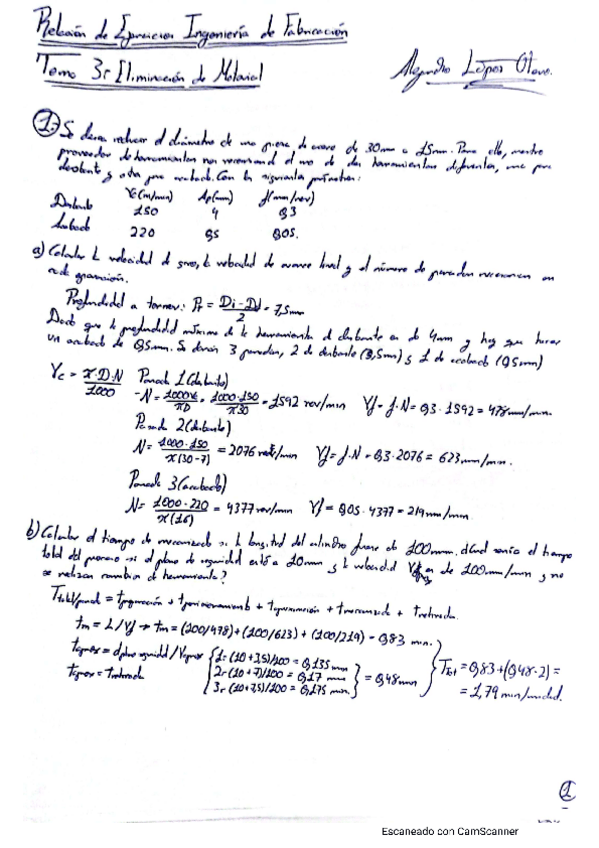 Relación de Ejercicios Ingeniería de Fabricación
Tema 3: Eliminación de Material
Alejandro López
1. Se desea reducir el diámetro de una pieza de acero de 30mm a 15mm. Para ello, nuestro
proveedor de herramientas nos recomienda el uso de dos herramientas diferentes, una para
desbaste y otra para acabado. Con los siguientes parámetros:
Vc(m/min) Ap(mm) f(mm/rev)
Desbaste 150 4 0,3
Acabado 220 0,5 0,05.
a) Calcular la velocidad de giro, la velocidad de avance lineal y el número de pasadas necesarias en
cada operación.
Profundidad a tornear: Pt = Di - Dd / 2 = 7,5mm
Dado que la profundidad máxima de la herramienta de desbaste es de 4mm y hay que hacer
un acabado de 0,5mm. Se darán 3 pasadas, 2 de desbaste (3,5mm) y 1 de acabado (0,5mm)
Vc = π·D·N / 1000 Pasada 1 (desbaste)
-N = 1000Vc / πD = 1000·150 / π30 = 1592 rev/min Vf = f·N = 0,3·1592 = 478mm/min.
Pasada 2 (desbaste)
N = 1000·150 / π(30-7) = 2076 rev/min Vf = f·N = 0,3·2076 = 623mm/min.
Pasada 3 (acabado)
N = 1000·220 / π(16) = 4377 rev/min Vf = 0,05·4377 = 219mm/min
b) Calcular el tiempo de mecanizado si la longitud del cilindro fuese de 100mm. ¿Cuál sería el tiempo
total del proceso si el plano de seguridad está a 10mm y la velocidad es de 100mm/min y no
se realizan cambios de herramienta?
Ttotal/pasada = tpreparación + tposicionamiento + taproximación + tmecanizado + tretirada.
tm = L/Vf → tm = (100/478)+(100/623)+(100/219) = 0,83 min.
taprox = dplano seguridad / Vaprox
1: (10+3,5)/100 = 0,135 mm
2: (10+7)/100 = 0,17 mm
3: (10+7,5)/100 = 0,175 min.
= 0,48mm
taprox = tretirada
Ttot = 0,83+(0,48·2) =
= 1,79 min/unidad.
1
Escaneado con CamScanner